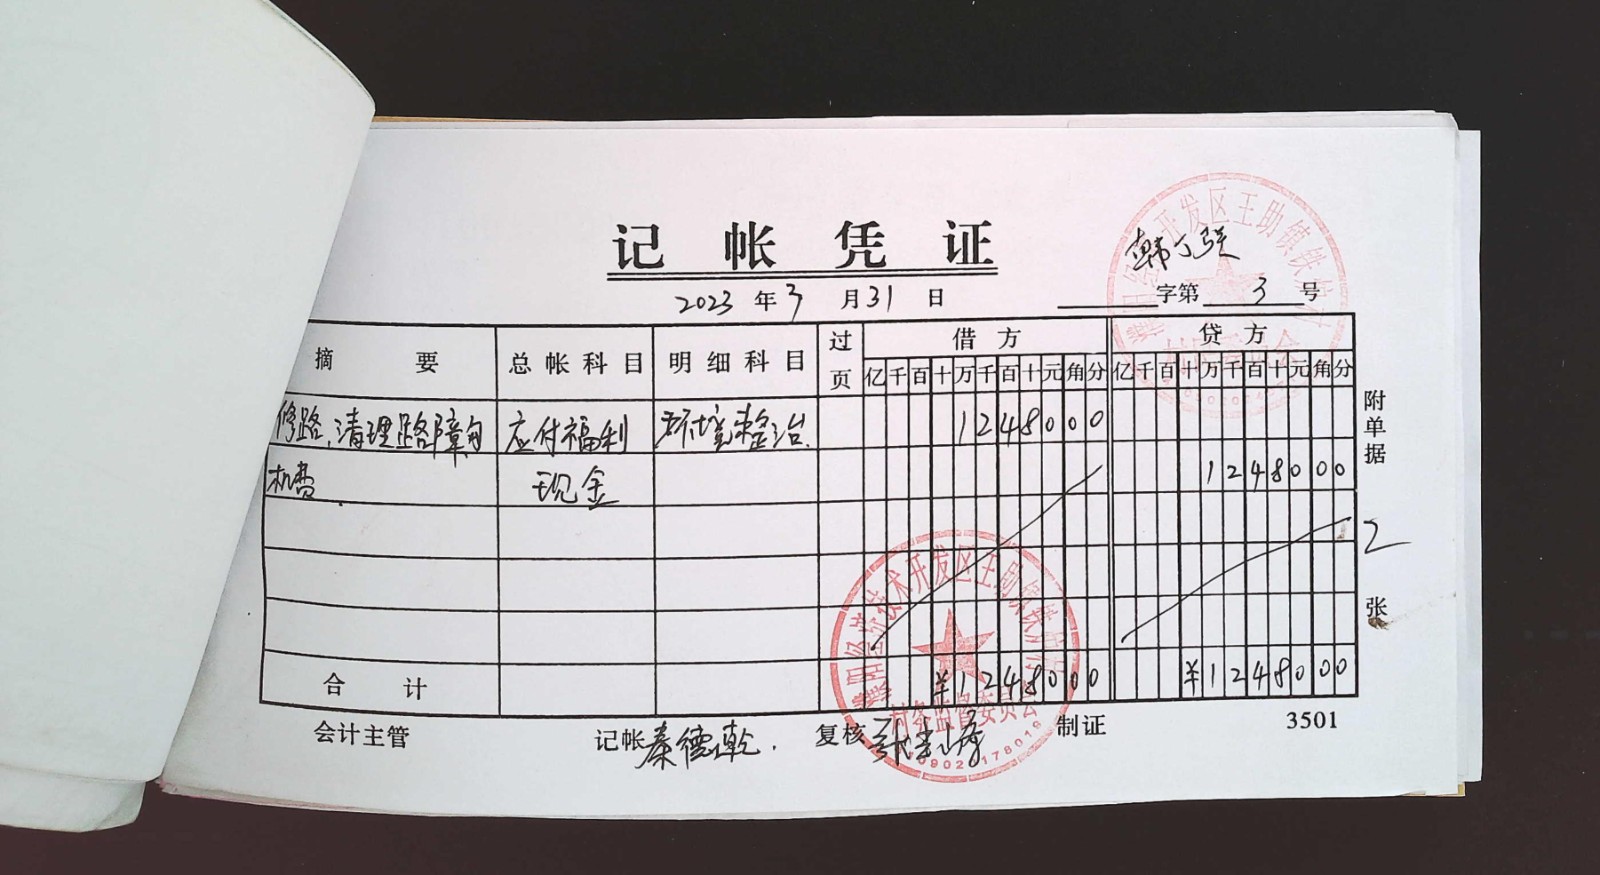 记帐凭证
2023年3月31日
字第3号
摘要 总帐科目 明细科目 过页 借方 贷方
亿千百十万千百十元角分 亿千百十万千百十元角分
修路,清理路障 应付福利 环境整治. 1248000
机费. 现金 1248000
合计 ¥1248000 ¥1248000
附单据 2 张
会计主管 记帐 秦德乾. 复核 制证 3501
经济技术开发区王助镇
村务监督委员会
开发区王助镇